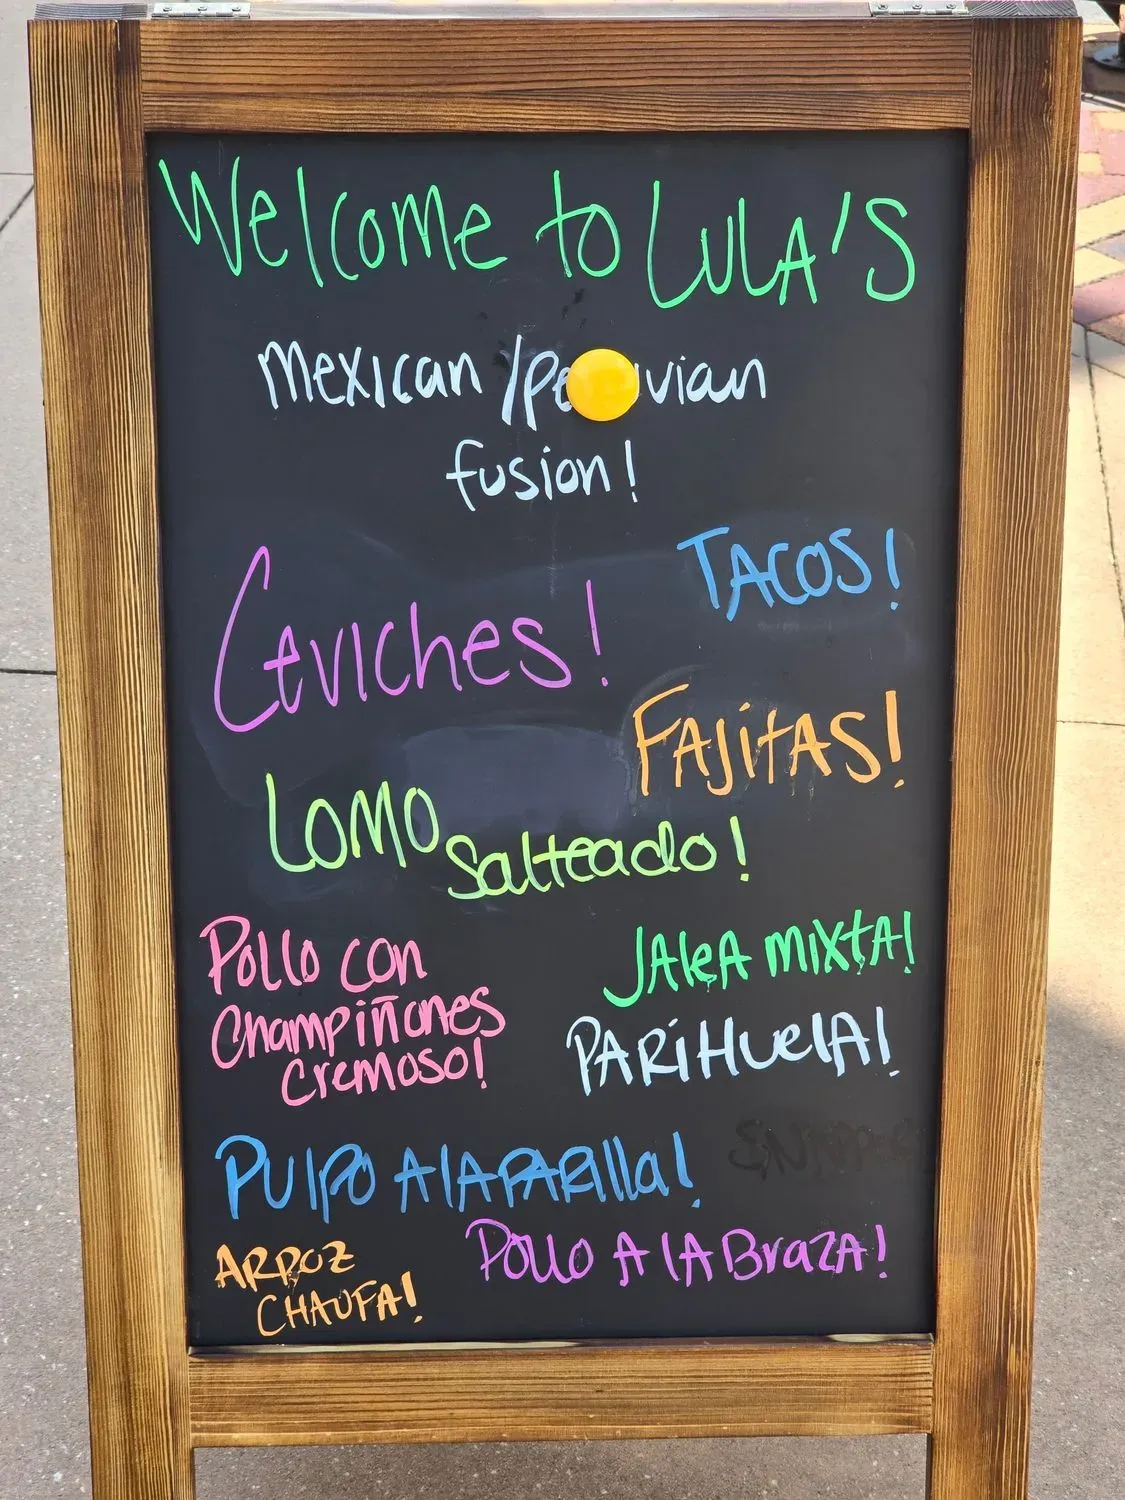 Welcome to LULA'S
Mexican / Peruvian
fusion!
TACOS!
Ceviches!
FAJitAS!
LOMO Salteado!
Pollo con
Champiñones
cremoso!
JAleA MIXtA!
PARiHuelA!
PUlPO A lA PARilla!
ARROZ
CHAUFA!
POLLO A lA BrazA!